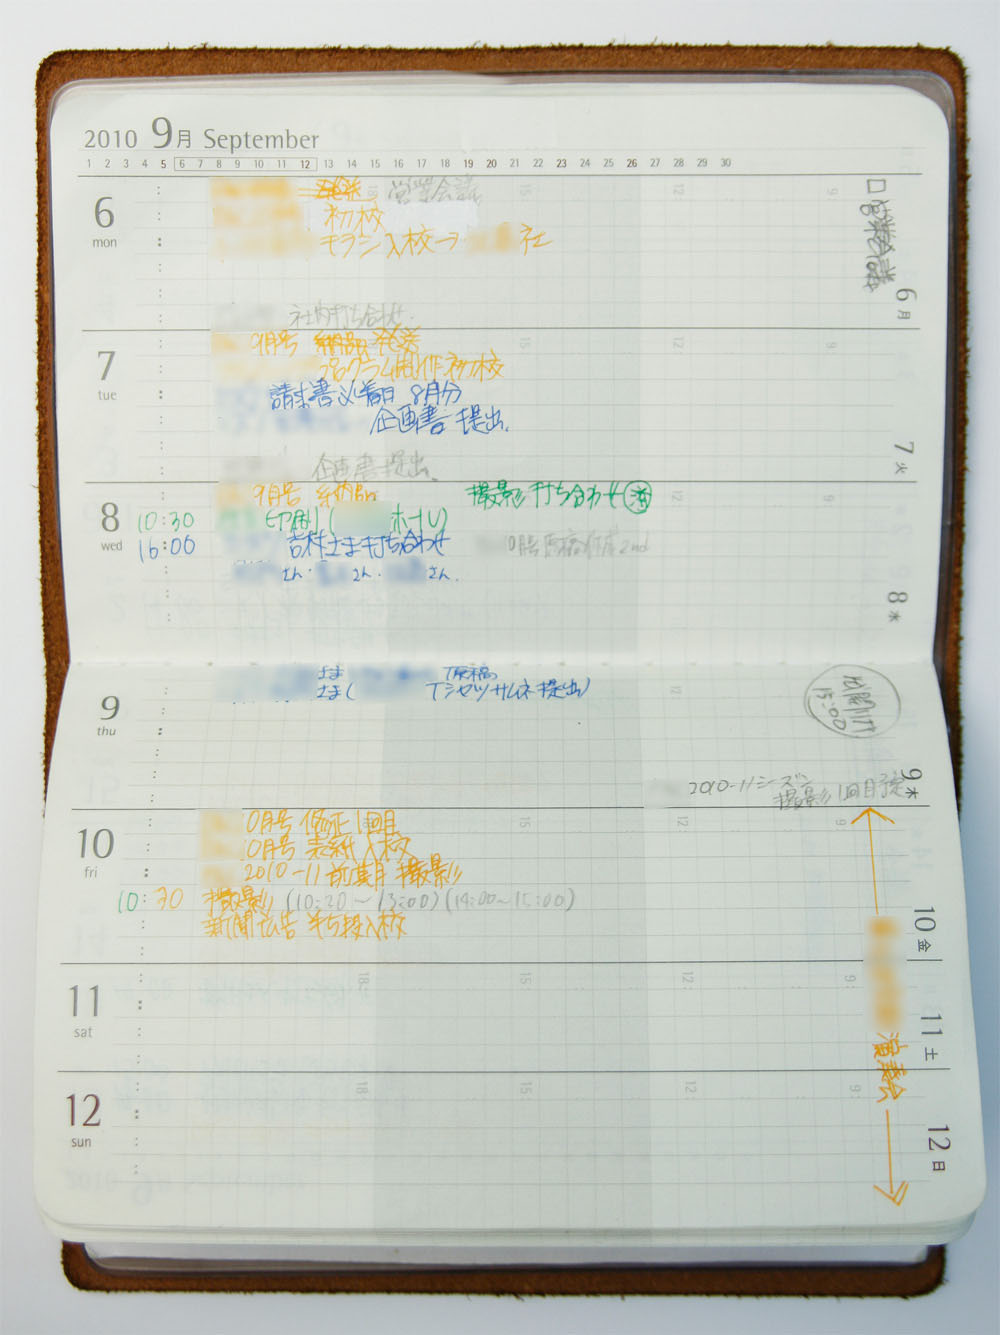 2010 9月 September
1 2 3 4 5 6 7 8 9 10 11 12 13 14 15 16 17 18 19 20 21 22 23 24 25 26 27 28 29 30
6
mon
発送 営業会議
初校
チラシ入校→ 社
社内打ち合わせ
18 15 12 9
□営業会議
6月
7
tue
9月号 納品 発送
プログラム制作 初校
請求書必着日 8月分
企画書 提出.
企画書提出.
15 12 9
7火
8
wed
9月号 納品 撮影打ち合わせ 済
10:30 印刷( ホール)
16:00 吉村さま打ち合わせ
0月号 原稿 2nd
さん. さん. さん.
12 9
8水
9
thu
さま 原稿
さま( Tシャツサムネ提出)
12
15:00
2010-11シーズン
撮影1回目予定
9木
10
fri
0月号 修正1回目
0月号 表紙入校
2010-11前期 撮影
10:30 撮影 (10:20~13:00)(14:00~15:00)
新聞広告 半5段入校
15 12 9
10金
11
sat
18: 15: 12: 9:
11土
演奏会
12
sun
18 15 12 9:
12日